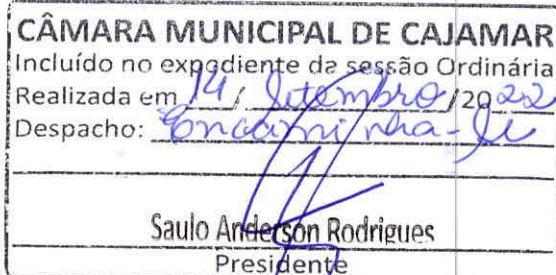 CÂMARA MUNICIPAL DE CAJAMAR
Incluído no expediente da sessão Ordinária
Realizada em 14 / Setembro /2022
Despacho: Encaminha-se
Saulo Anderson Rodrigues
Presidente